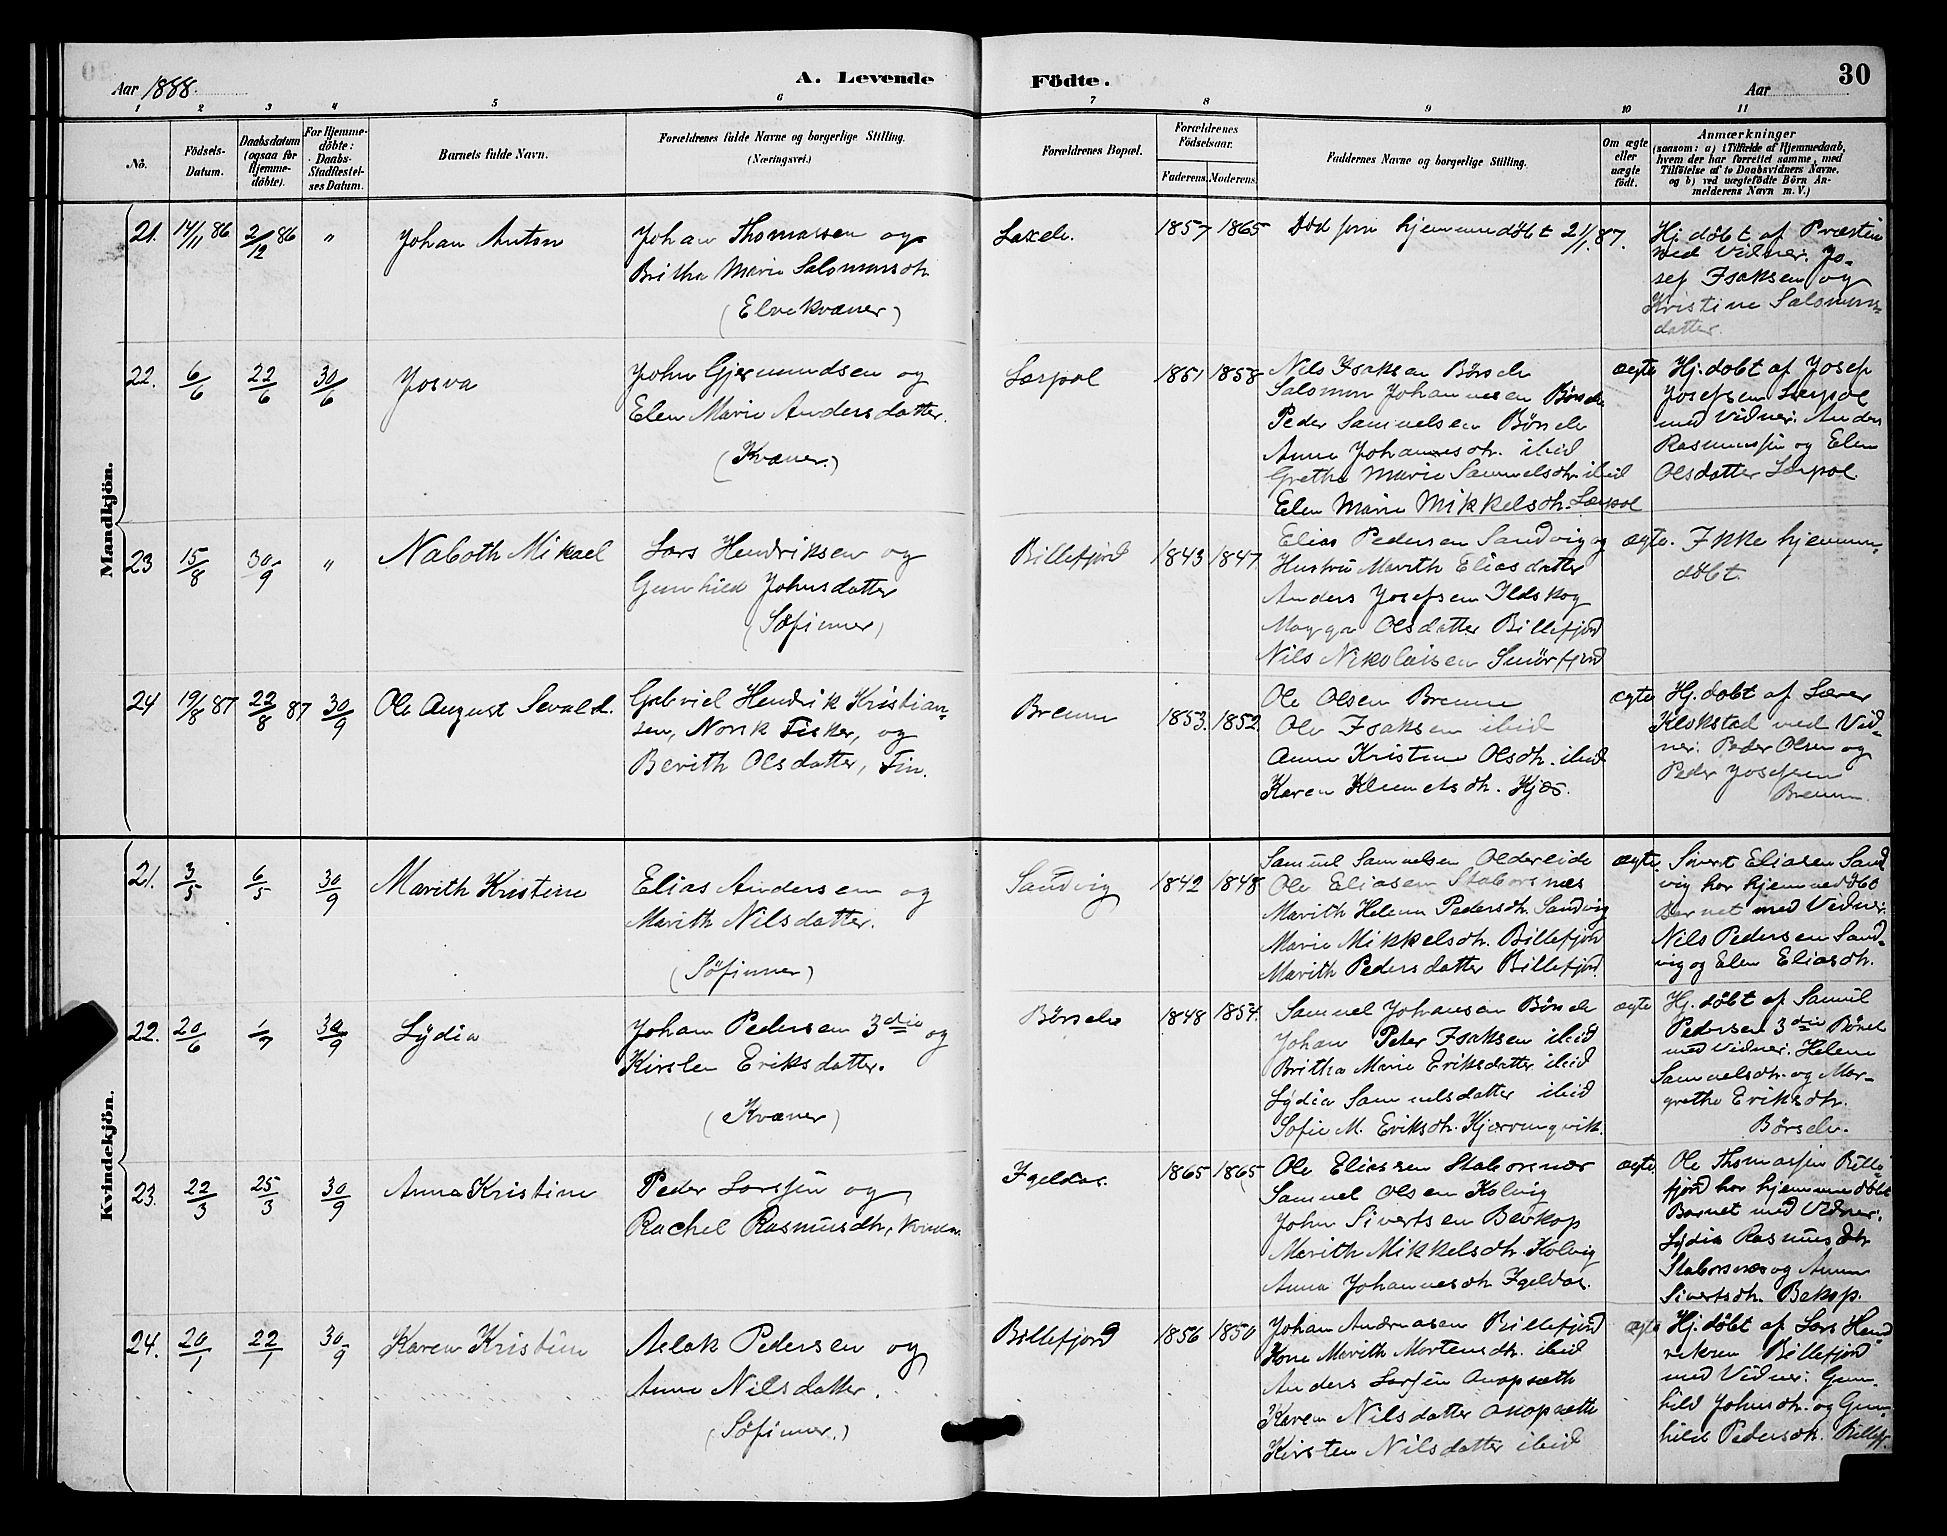 Aar 1888.
A. Levende Födte.
Aar
30
1 2 3 4 5 6 7 8 9 10 11
No.
Födsels-Datum.
Daabsdatum (ogsaa for Hjemme-döbte).
For Hjemme-döbte: Daabs-Stadfæstel-ses Datum.
Barnets fulde Navn.
Forældrenes fulde Navne og borgerlige Stilling.
(Næringsvei.)
Forældrenes Bopæl.
Forældrenes Födselsaar.
Faderens. Moderens.
Faddernes Navne og borgerlige Stilling.
Om ægte eller uægte födt.
Anmærkninger
(saasom: a) i Tilfælde af Hjemmedaab,
hvem der har forrettet samme, med
Tilföielse af to Daabsvidners Navne,
og b) ved uægtefödte Börn An-
melderens Navn m. V.)
Mandkjön.
21. 14/11 86 2/12 86 " Johan Anton
Johan Thomassen og
Britha Marie Salomonsdtr
(Elvekvæner)
1857 1865
Död som hjemmedöbt 2/1 87.
Hj. döbt af Præsten
med Vidner: Jo-
sef Isaksen og
Kristine Salomons-
datter.
22. 6/6 22/6 30/6 Josva
John Gjermundsen og
Elen Marie Andersdatter.
(Kvæner.)
Leirpol 1851 1858
Nils Isaksen Börselv
Salomon Johannesen Börselv
Peder Samuelsen Börselv
Anna Johannesdtr. ibid
Grethe Marie Samuelsdtr. ibid
Elen Marie Mikkelsdtr. Leirpol
ægte
Hj. döbt af Josef
Josefsen Leirpol
med Vidner: Anders
Rasmussen og Elen
Olsdatter Leirpol
23 15/8 30/9 " Naboth Mikael
Lars Henriksen og
Gunhild Johnsdatter
(Söfinner)
Billefjord 1843 1847
Elias Pedersen Sandvig og
Hustru Marith Eliasdatter
Anders Josefsen Ildskog
Magga Olsdatter Billefjord
Nils Nikolaisen Smörfjord
ægte.
Ikke hjemme-
döbt.
24 19/8 87 22/8 87 30/9 Ole August Sevald.
Gabriel Hendrik Kristian-
sen, Norsk Fisker, og
Berith Olsdatter, Fin.
Brenna 1853. 1852.
Ole Olsen Brenna
Ole Isaksen ibid
Anne Kristine Olsdtr. ibid
Karen Klemetsdtr. Kjæs.
ægte
Hj. döbt af Lærer
Klokstad med Vid-
ner: Peder Olsen og
Peder Josefsen
Brenna.
Kvindekjön.
21. 3/5 6/5 30/9 Marith Kristine
Elias Andersen og
Marith Nilsdatter.
(Söfinner)
Sandvig 1842 1848
Samuel Samuelsen Oldereide
Ole Eliasen Staborsnæs
Marith Helene Pedersdtr. Sandvig
Marie Mikkelsdtr. Billefjord
Marith Pedersdatter Billefjord
ægte.
Sivert Eliasen Sand
vig har hjemmedöbt
Barnet med Vidner:
Nils Pedersen Sand-
vig og Elen Eliasdtr.
22. 20/6 1/7 30/9 Lydia
Johan Pedersen 3die og
Kirsten Eriksdatter.
(Kvæner)
Börselv 1848 1854.
Samuel Johansen Börselv
Johan Peter Isaksen ibid
Britha Marie Eriksdatter ibid
Lydia Samuelsdatter ibid
Sofie M. Eriksdtr.
ægte
Hj. döbt af Samuel
Pedersen 3die Börselv
med Vidner: Helene
Samuelsdtr. og Mar-
grethe Eriksdtr.
Börselv.
23. 22/3 25/3 30/9 Anna Kristine
Peder Larssen og
Rachel Rasmusdtr,
Igeldas. 1865 1865
Ole Eliassen Staborsnæs
Samuel Olsen Kolvig
John Sivertsen
Marith Mikkelsdtr. Kolvig
Anna Johannesdtr Igeldas.
ægte
Ole Thomassen Bille-
fjord har hjemmedöbt
Barnet med Vidner:
Lydia Rasmusdtr
Staborsnæs og Anne
Sivertsdtr.
24. 20/1 22/1 30/9 Karen Kristine
Aslak Pedersen og
Anne Nilsdatter.
(Söfinner.)
Billefjord 1856 1850
Johan Andreasen Billefjord
Kone Marith Mortensdtr. ibid
Anders Larsen
Karen Nilsdatter
Kirsten Nilsdatter ibid
ægte
Hj. döbt af Lars Hend
riksen Billefjord
med Vidner: Gun-
hild Johnsdtr. og Gun-
hild Pedersdtr. Billefj.